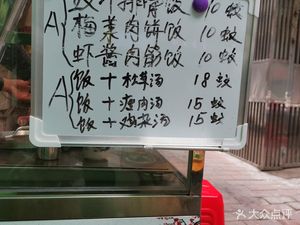 排骨饭 10蚊
A 梅菜肉饼饭 10蚊
虾酱肉筋饭 10蚊
饭+枕草汤 18蚊
A 饭+瘦肉汤 15蚊
饭+鸡杂汤 15蚊
大众点评